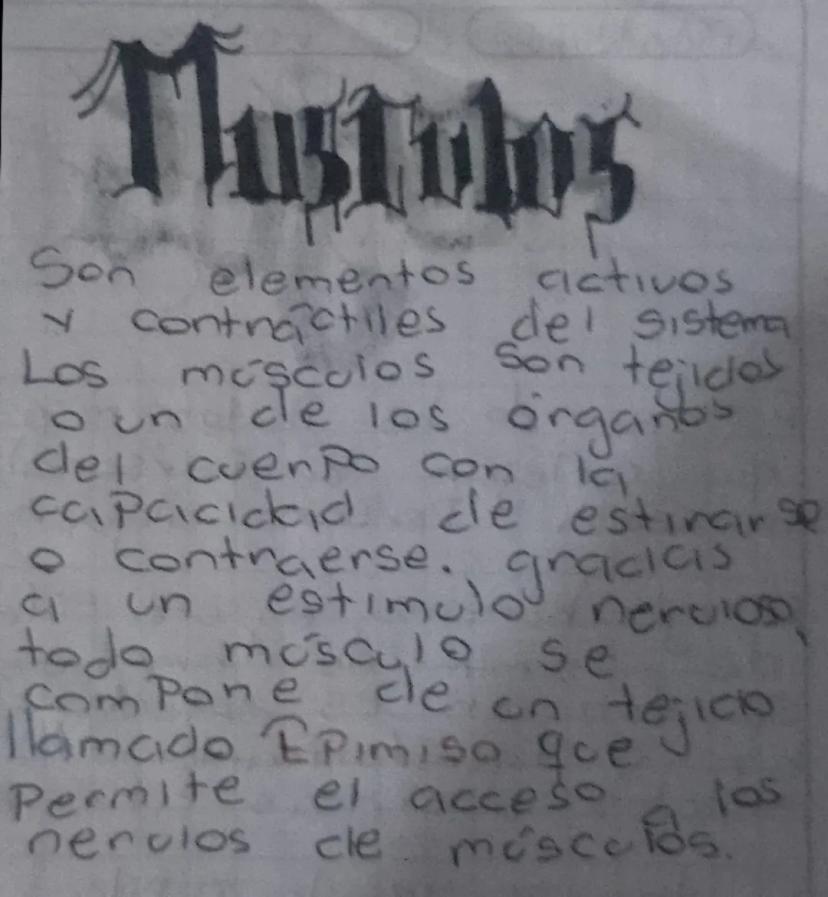 Musculos
Son elementos activos
y contráctiles del sistema
Los músculos son tejidos
o un de los órganos
del cuerpo con la
capacidad de estirarse
o contraerse. gracias
a un estimulo nervioso,
todo músculo se
compone de un tejido
llamado Epimiso que
Permite el acceso a los
nervios de músculos.